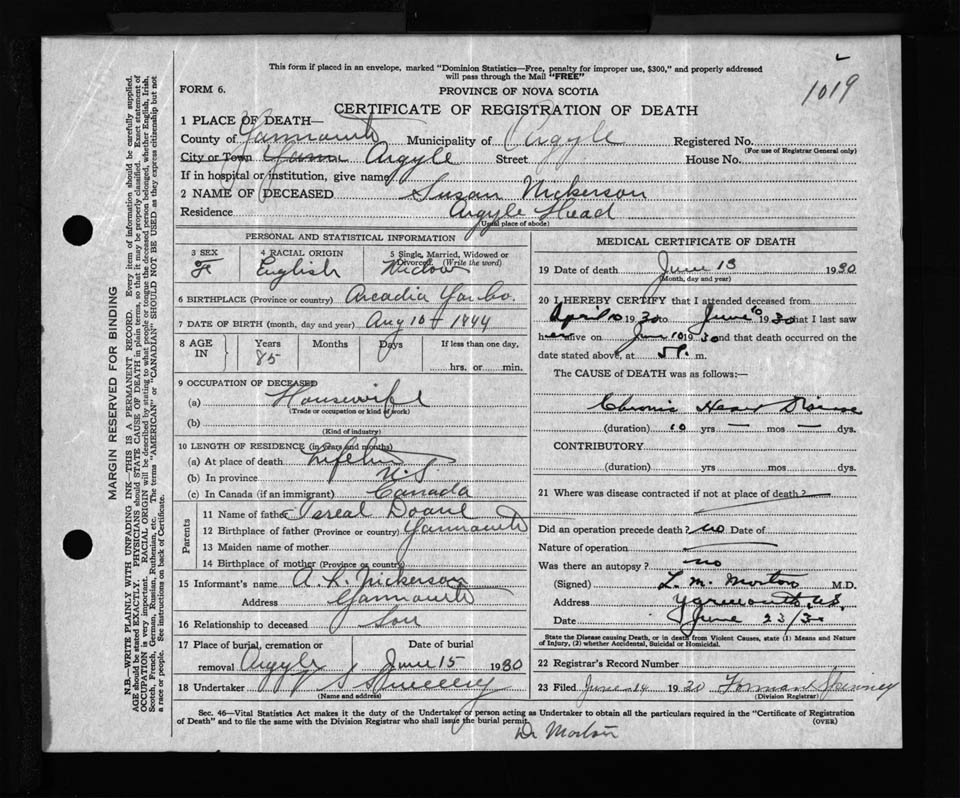 This form if placed in an envelope, marked "Dominion Statistics—Free, penalty for improper use, $300," and properly addressed
will pass through the Mail "FREE"
1019
FORM 6.
PROVINCE OF NOVA SCOTIA
CERTIFICATE OF REGISTRATION OF DEATH
1 PLACE OF DEATH—
County of Yarmouth Municipality of Argyle Registered No.
(For use of Registrar General only)
City or Town Argyle Street House No.
If in hospital or institution, give name
2 NAME OF DECEASED Susan Nickerson
Residence Argyle Head
(Usual place of abode)
PERSONAL AND STATISTICAL INFORMATION
3 SEX
F
4 RACIAL ORIGIN
English
5 Single, Married, Widowed or
Divorced. (Write the word)
Widow
6 BIRTHPLACE (Province or country) Arcadia Yar. Co.
7 DATE OF BIRTH (month, day and year) Aug 10 1844
8 AGE
IN
Years
85
Months
Days
If less than one day.
hrs. or min.
9 OCCUPATION OF DECEASED
(a) Housewife
(Trade or occupation or kind of work)
(b)
(Kind of industry)
10 LENGTH OF RESIDENCE (in years and months)
(a) At place of death Lifetime
(b) In province N.S.
(c) In Canada (if an immigrant) Canada
Parents
11 Name of father Doane
12 Birthplace of father (Province or country) Yarmouth
13 Maiden name of mother
14 Birthplace of mother (Province or country)
15 Informant's name A. K. Nickerson
Address Yarmouth
16 Relationship to deceased Son
17 Place of burial, cremation or
removal Argyle
Date of burial
June 15 1930
18 Undertaker
(Name and address)
MEDICAL CERTIFICATE OF DEATH
19 Date of death June 13 1930
(Month, day and year)
20 I HEREBY CERTIFY that I attended deceased from
April 10 1930 to June 10 1930 that I last saw
her alive on June 10 1930 and that death occurred on the
date stated above, at 5 P. m.
The CAUSE of DEATH was as follows:—
Chronic Heart Disease
(duration) 10 yrs — mos — dys.
CONTRIBUTORY
(duration) yrs mos dys.
21 Where was disease contracted if not at place of death?
Did an operation precede death? no Date of
Nature of operation
Was there an autopsy? no
(Signed) L. M. Morton M.D.
Address Yarmouth, N.S.
Date June 23/30
State the Disease causing Death, or in death from Violent Causes, state (1) Means and Nature
of Injury, (2) whether Accidental, Suicidal or Homicidal.
22 Registrar's Record Number
23 Filed June 14 1930 Forman
(Division Registrar)
Sec. 46—Vital Statistics Act makes it the duty of the Undertaker or person acting as Undertaker to obtain all the particulars required in the "Certificate of Registration
of Death" and to file the same with the Division Registrar who shall issue the burial permit.
(OVER)
Dr Morton
MARGIN RESERVED FOR BINDING
N.B.—WRITE PLAINLY WITH UNFADING INK—THIS IS A PERMANENT RECORD. Every item of information should be carefully supplied.
AGE should be stated EXACTLY. PHYSICIANS should STATE CAUSE OF DEATH in plain terms, so that it may be properly classified. Exact statement of
OCCUPATION is very important. RACIAL ORIGIN will be described by stating to what people or tongue the deceased person belonged, whether English, Irish,
Scotch, French, German, Russian, Ruthenian, etc. The terms "AMERICAN" or "CANADIAN" SHOULD NOT BE USED as they express citizenship but not
a race or people. See instructions on back of Certificate.